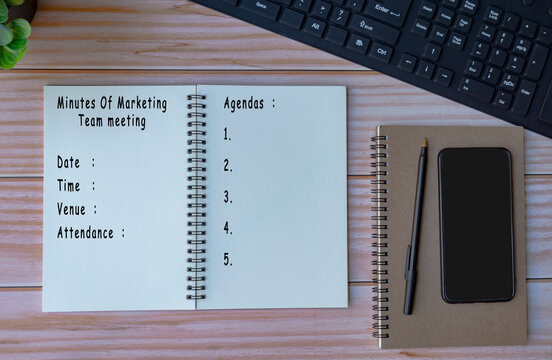 Minutes Of Marketing
Team meeting
Date :
Time :
Venue :
Attendance :
Agendas :
1.
2.
3.
4.
5.